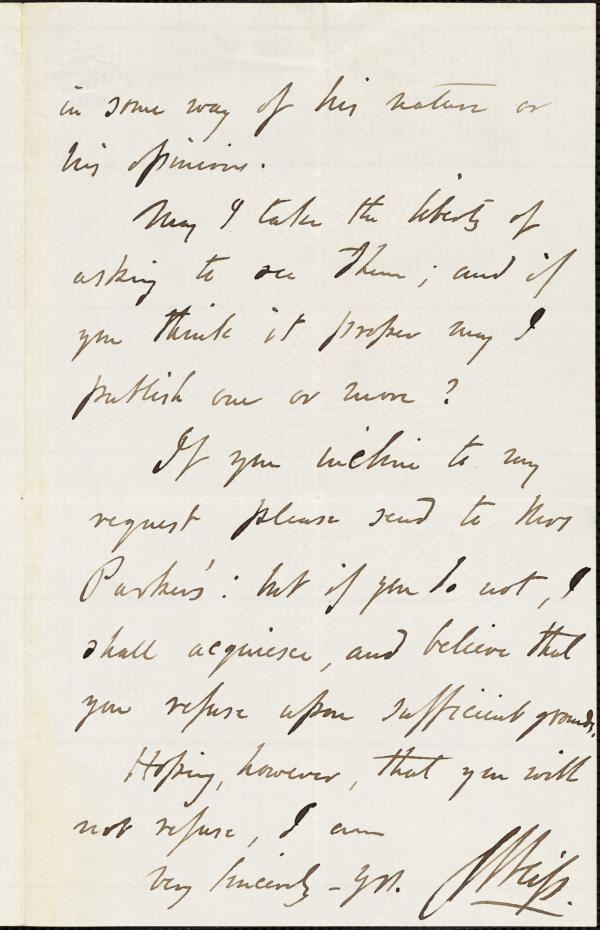 in some way of his nature or
his opinions.
May I take the liberty of
asking to see them; and if
you think it proper may I
publish one or more?
If you incline to my
request please send to Mrs
Parker's: but if you do not, I
shall acquiesce, and believe that
you refuse upon sufficient grounds.
Hoping, however, that you will
not refuse, I am
very sincerely - yrs. J Weiss.